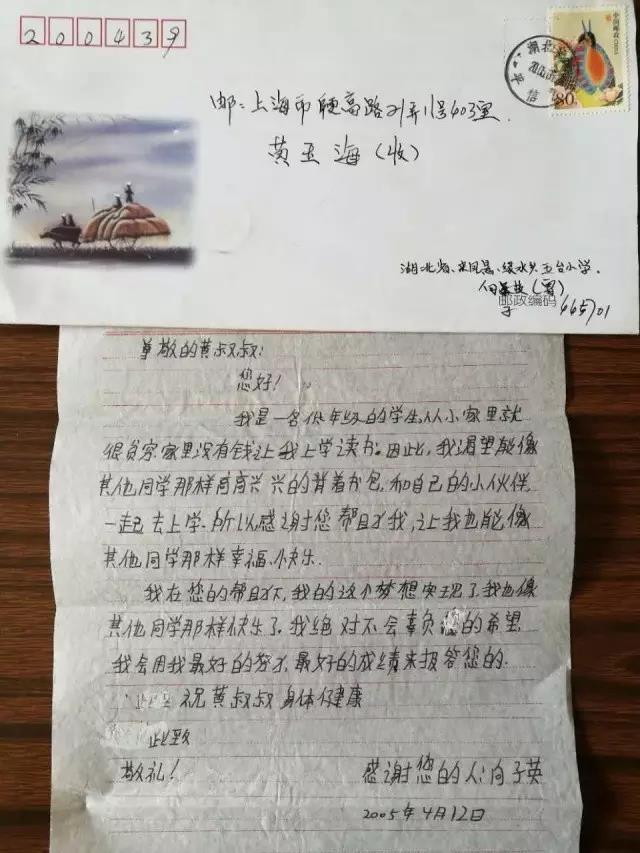 200439
中国邮政
80
邮:上海市 高路21弄11号603室.
黄玉海(收)
湖北省、来凤县、绿水乡五台小学.
向子英(寄)
邮政编码 445701
尊敬的黄叔叔:
您好!
我是一名低年级的学生,从小家里就
很贫穷家里没有钱让我上学读书。因此,我渴望能像
其他同学那样高高兴兴的背着书包,和自己的小伙伴
一起去上学.所以感谢您帮助我,让我也能像
其他同学那样幸福、快乐.
我在您的帮助下,我的这个梦想实现了,我也像
其他同学那样快乐了。我绝对不会辜负您的希望
我会用我最好的努力,最好的成绩来报答您的.
祝黄叔叔身体健康
此致
敬礼!
感谢您的人:向子英
2005年4月12日